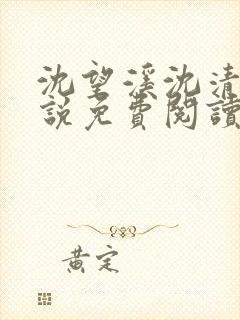 沈望溪沈清
說免費閱讀
黄定